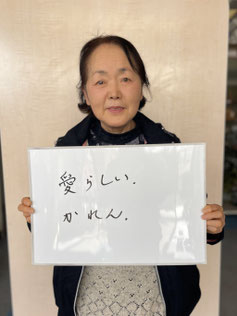 愛らしい.
かれん.